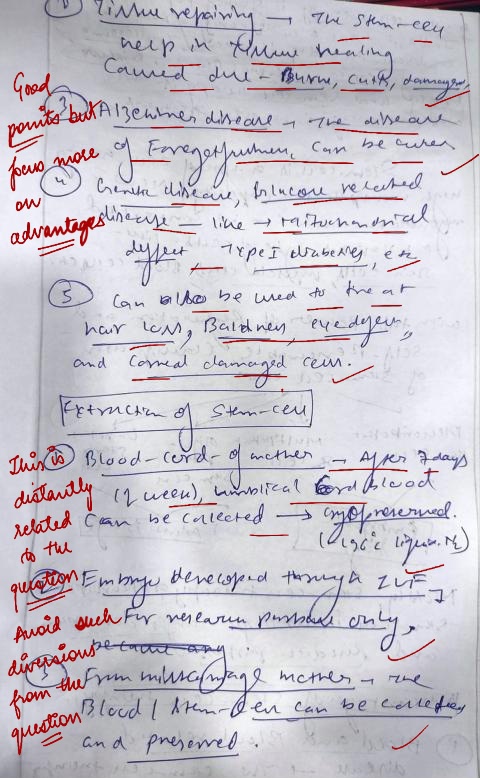 ① Tissue repairing → The stem-cell
help in tissue healing
Caused due - Burns, cuts, damages,
Good
points but
focus more
on
advantages
③ Alzehmers disease → The disease
of Foregetfulness, can be cured
④ Genetic disease, Glucose related
disease — like → mitochondrial
defect, Type I diabetes, etc
⑤ Can also be used to treat
hair loss, Baldness,
and Corneal damaged cell.
Extraction of Stem-cell
This is
distantly
related
to the
question
Avoid such
diversions
from the
question
① Blood-cord-of mother → After 7 days
(1 week), umbilical Cord blood
Can be collected → cryopreserved.
(-196°c liquid N₂)
② Embryo developed through IVF,
For research purpose only,
③ From miscarriage mother → the
Blood / Stem-cell can be collected
and preserved.